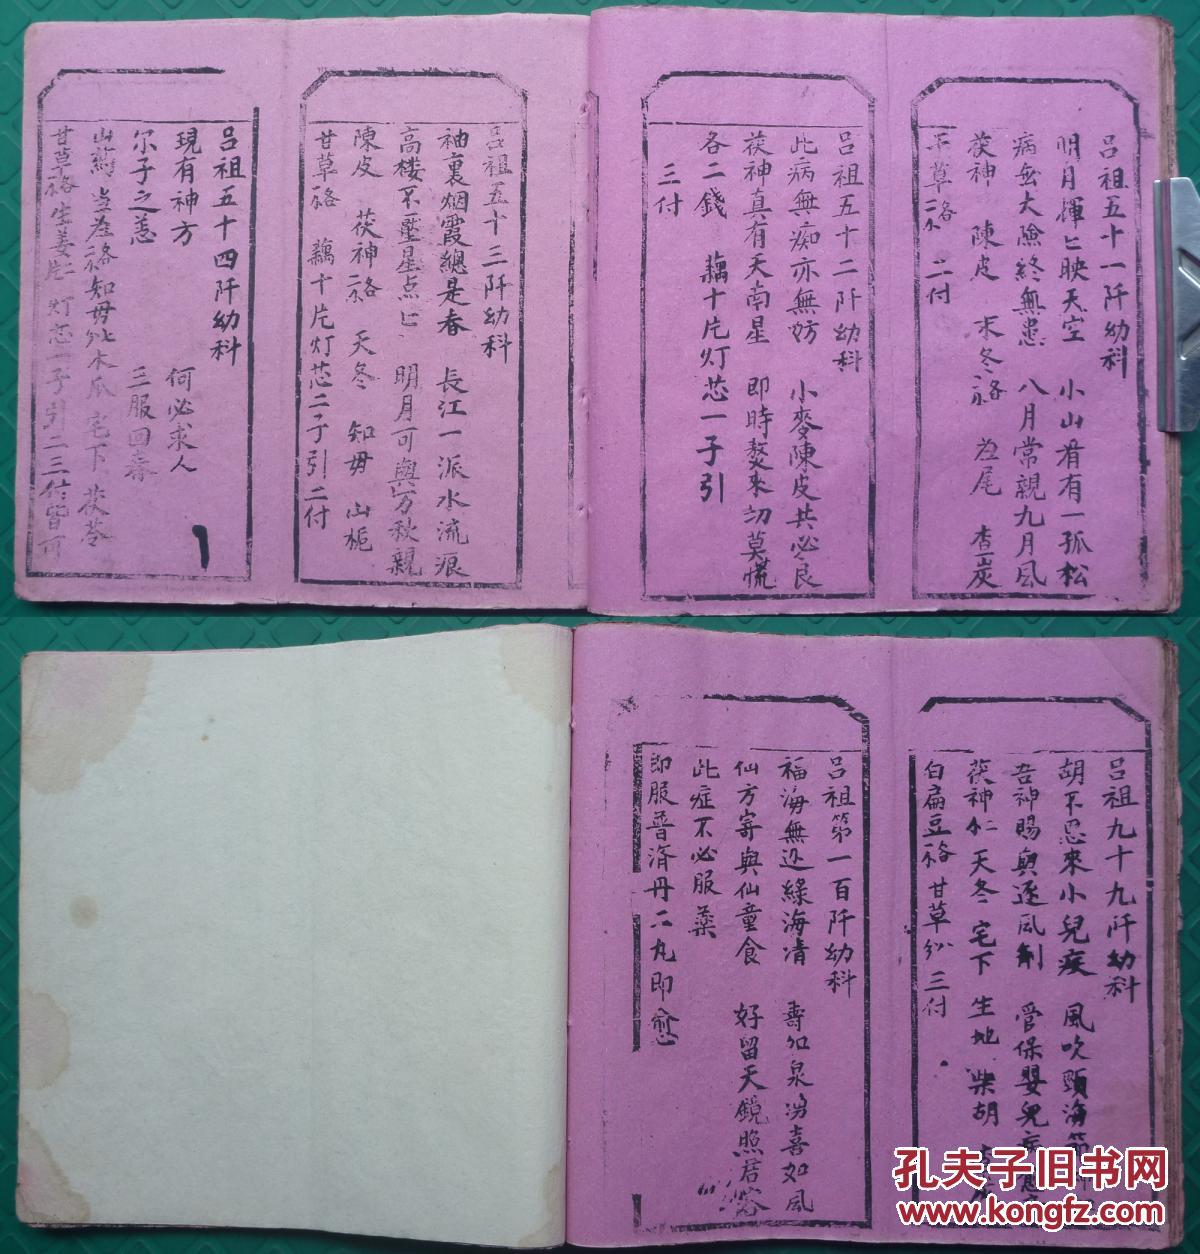 吕祖五十一阡幼科
明月揮匕映天空 小山脊有一孤松
病無大險終無患 八月常親九月風
茯神 陳皮 末冬 尾 查炭
草 二付
吕祖五十二阡幼科
此病無痴亦無妨 小麥陳皮共必良
茯神真有天南星 即時熬來切莫慌
各二錢 藕十片灯芯一子引
三付
吕祖五十三阡幼科
袖裏烟霞總是春 長江一派水流痕
高楼不 星点匕 明月可與万秋親
陳皮 茯神 天冬 知毋 山栀
甘草 藕十片灯芯二子引二付
吕祖五十四阡幼科
現有神方 何必求人
尔子之恙 三服回春
山药 当 知毋 木瓜 宅下 茯苓
甘草 生姜 灯芯一子引二三付皆可
吕祖九十九阡幼科
胡不思來小兒疾 風吹頸海
吾神賜與逐風劑 管保嬰兒病
茯神 天冬 宅下 生地 柴胡
白扁豆 甘草 三付
吕祖第一百阡幼科
福海無边綠海清 壽如泉湧喜如風
仙方寄與仙童食 好留天鏡照君容
此症不必服藥
即服普济丹二丸即愈
孔夫子旧书网
www.kongfz.com